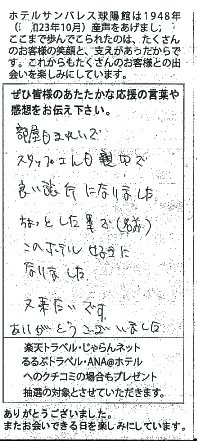 ホテルサンパレス球陽館は1948年
(　023年10月）産声をあげまし
ここまで歩んでこられたのは、たくさん
のお客様の笑顔と、支えがあったからで
す。これからもたくさんのお客様との出
会いを楽しみにしています。
ぜひ皆様のあたたかな応援の言葉や
感想をお伝え下さい。
部屋もきれいで
スタッフさんも親切で
良い旅行になりました
ちょっとした事で
このホテル好きに
なりました
又来たいです
ありがとうございました
楽天トラベル・じゃらんネット
るるぶトラベル・ANA@ホテル
へのクチコミの場合もプレゼント
抽選の対象とさせていただきます。
ありがとうございました。
またお会いできる日を楽しみにしています。